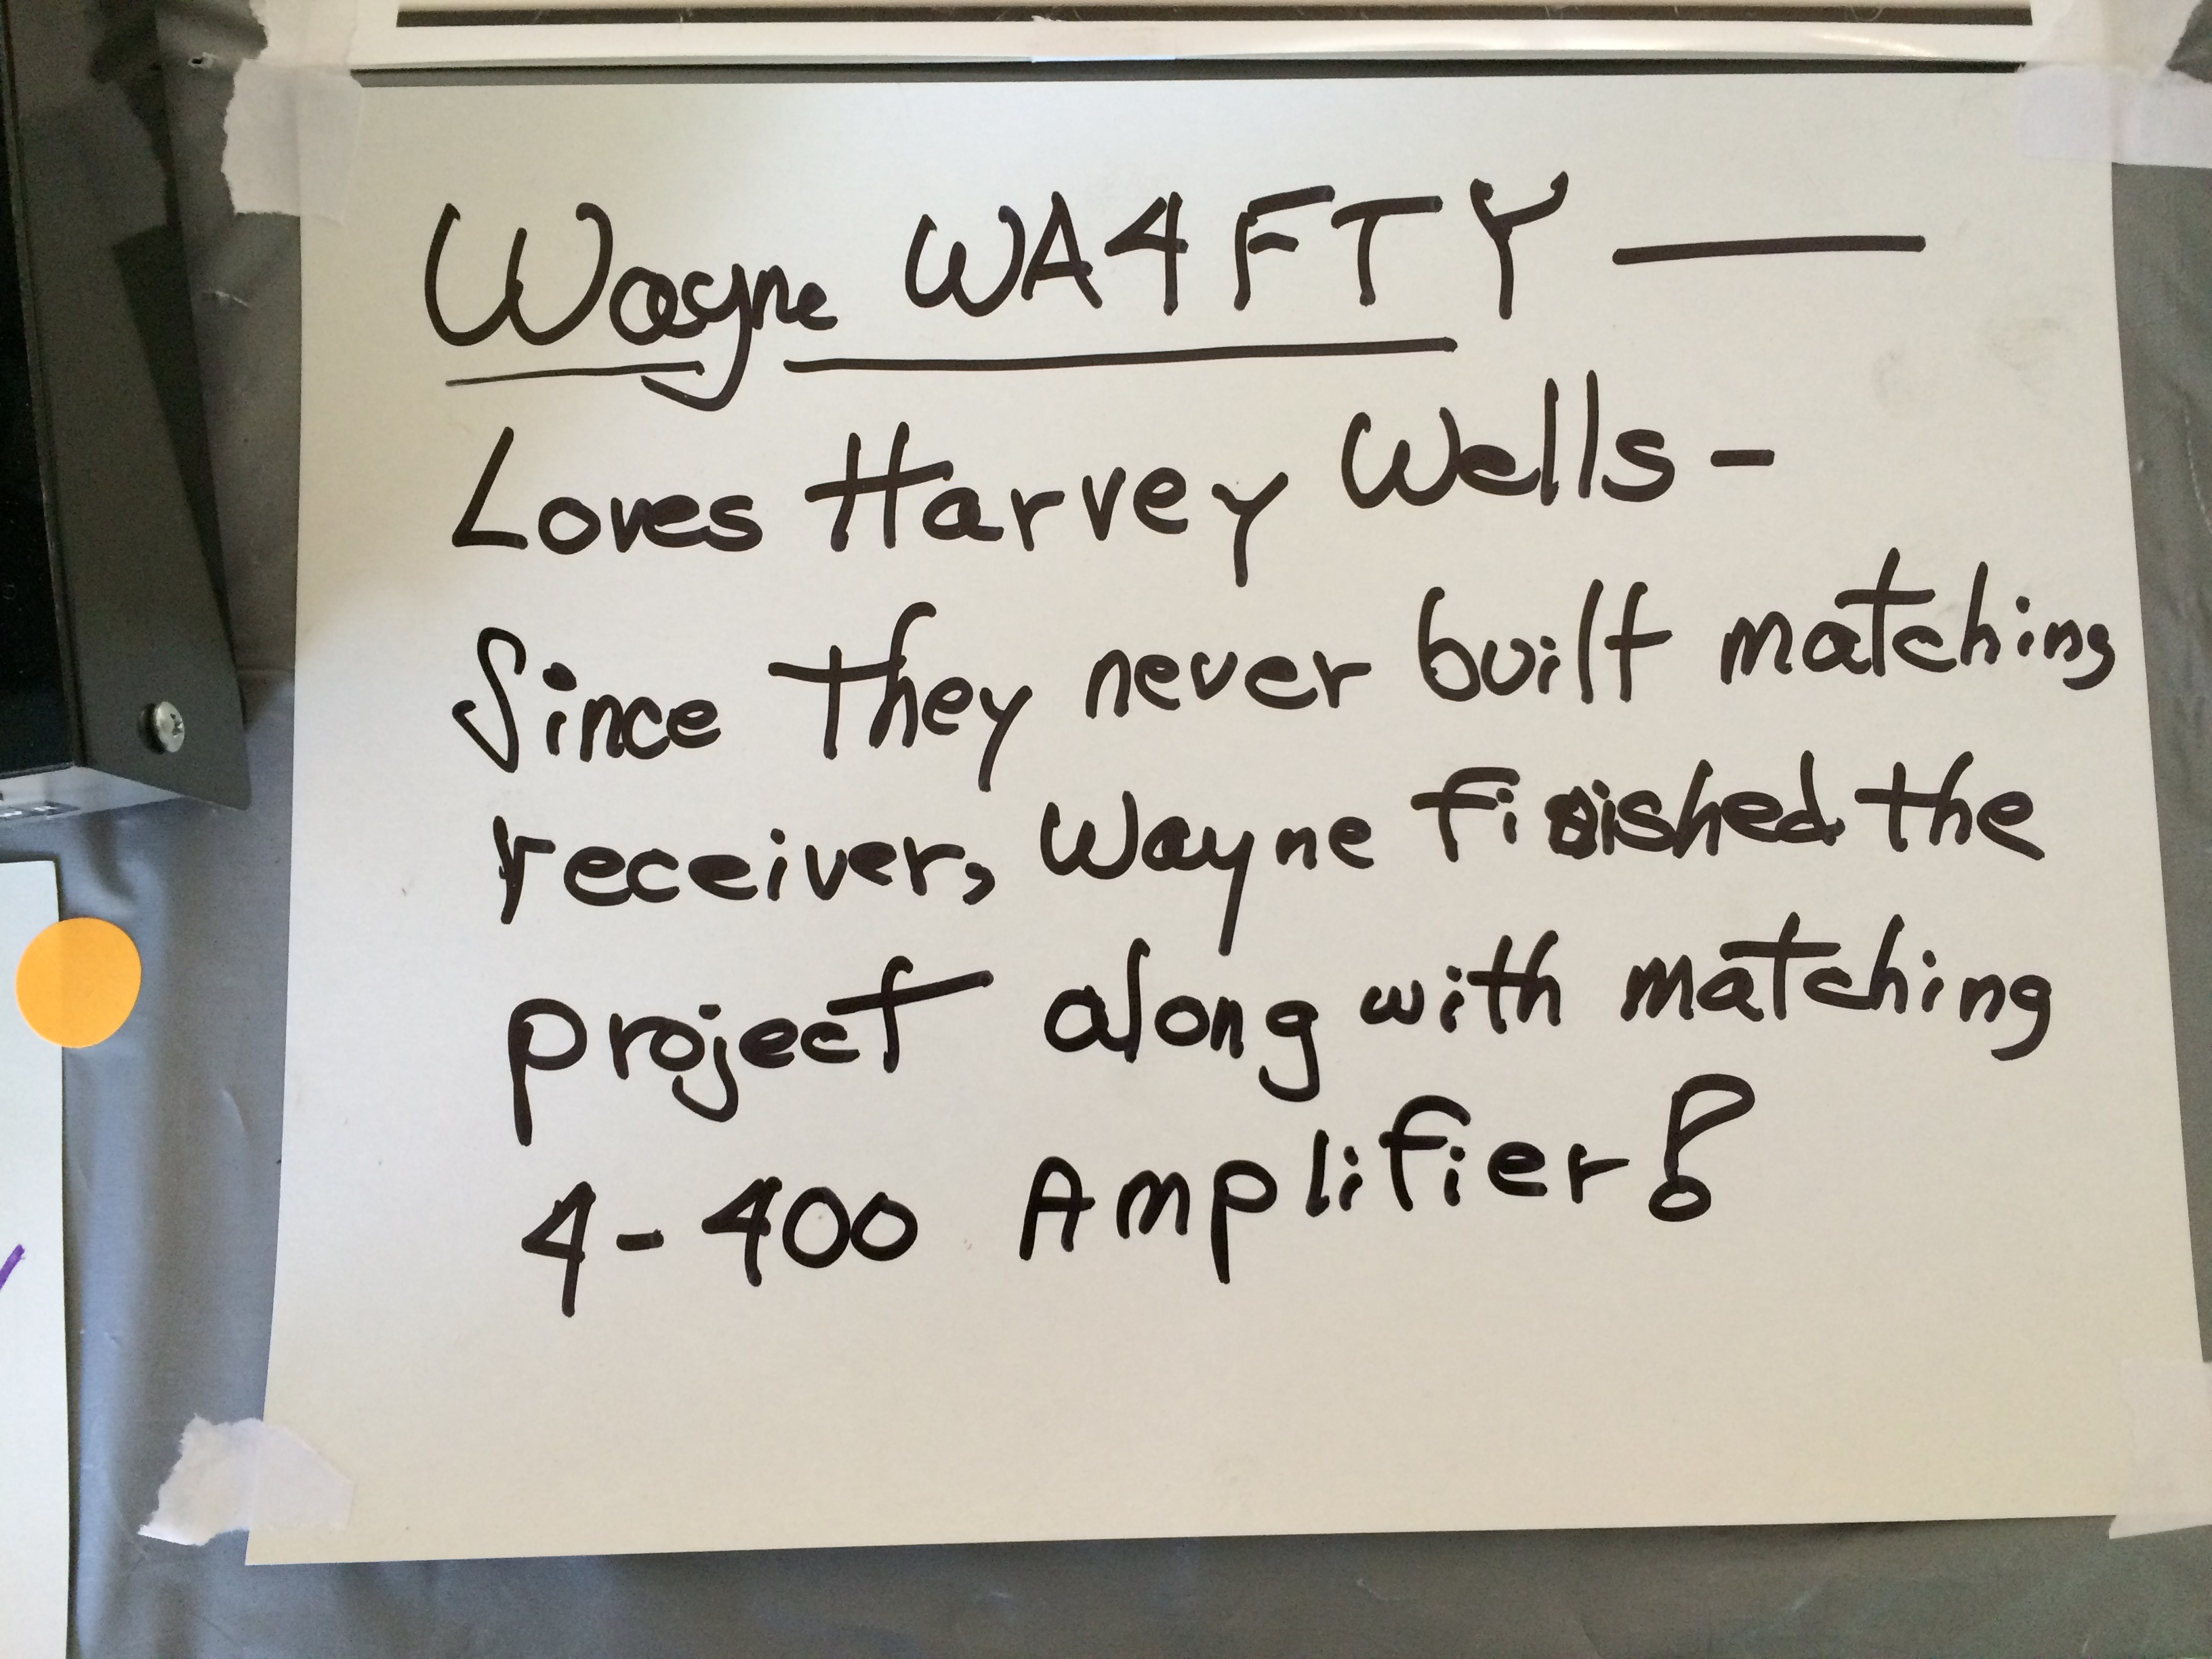 Wayne WA4FTY —
Loves Harvey Wells -
Since they never built matching
receiver, Wayne finished the
project along with matching
4-400 Amplifier!